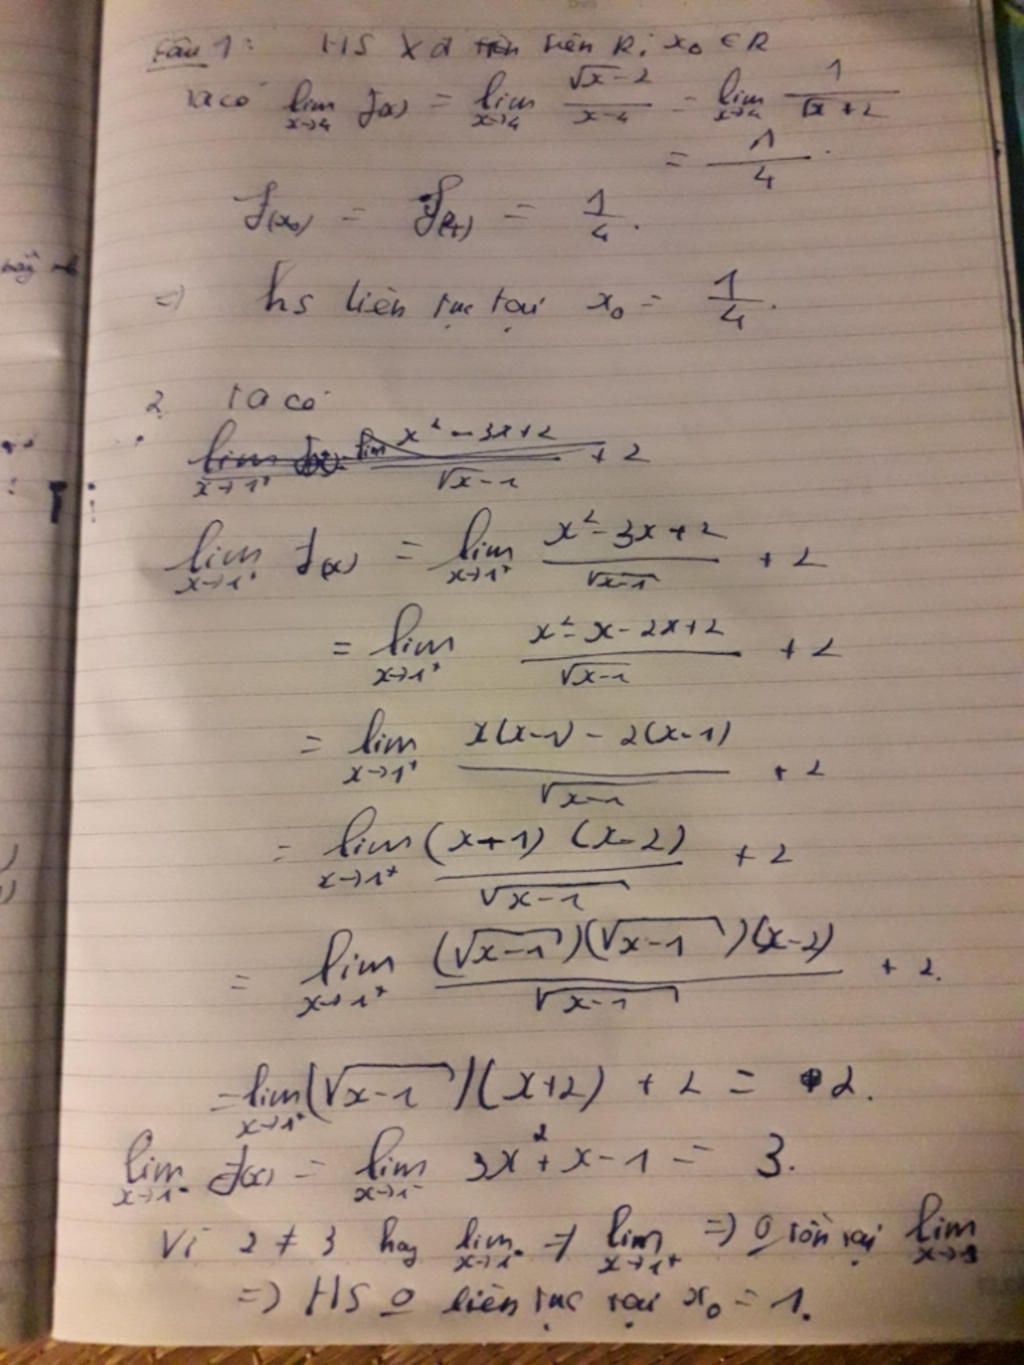 Câu 1: HS xđ trên R; x₀ ∈ R
Ta có lim x→4 f(x) = lim x→4 (√x - 2)/(x - 4) = lim x→4 1/(√x + 2)
= 1/4.
f(x₀) = f(4) = 1/4.
=> hs liên tục tại x₀ = 1/4.
2. Ta có
lim x→1⁺ f(x) = lim (x² - 3x + 2)/(√x - 1) + 2
lim x→1⁺ f(x) = lim x→1⁺ (x² - 3x + 2)/√(x-1) + 2
= lim x→1⁺ (x² - x - 2x + 2)/√(x-1) + 2
= lim x→1⁺ (x(x-1) - 2(x-1))/√(x-1) + 2
= lim x→1⁺ (x+1)(x-2)/√(x-1) + 2
= lim x→1⁺ (√(x-1))(√(x-1))(x-2)/√(x-1) + 2.
= lim x→1⁺ (√(x-1))(x+2) + 2 = 2.
lim x→1⁻ f(x) = lim x→1⁻ 3x² + x - 1 = 3.
Vì 2 ≠ 3 hay lim x→1⁻ ≠ lim x→1⁺ => 0 tồn tại lim
=> HS 0 liên tục tại x₀ = 1.